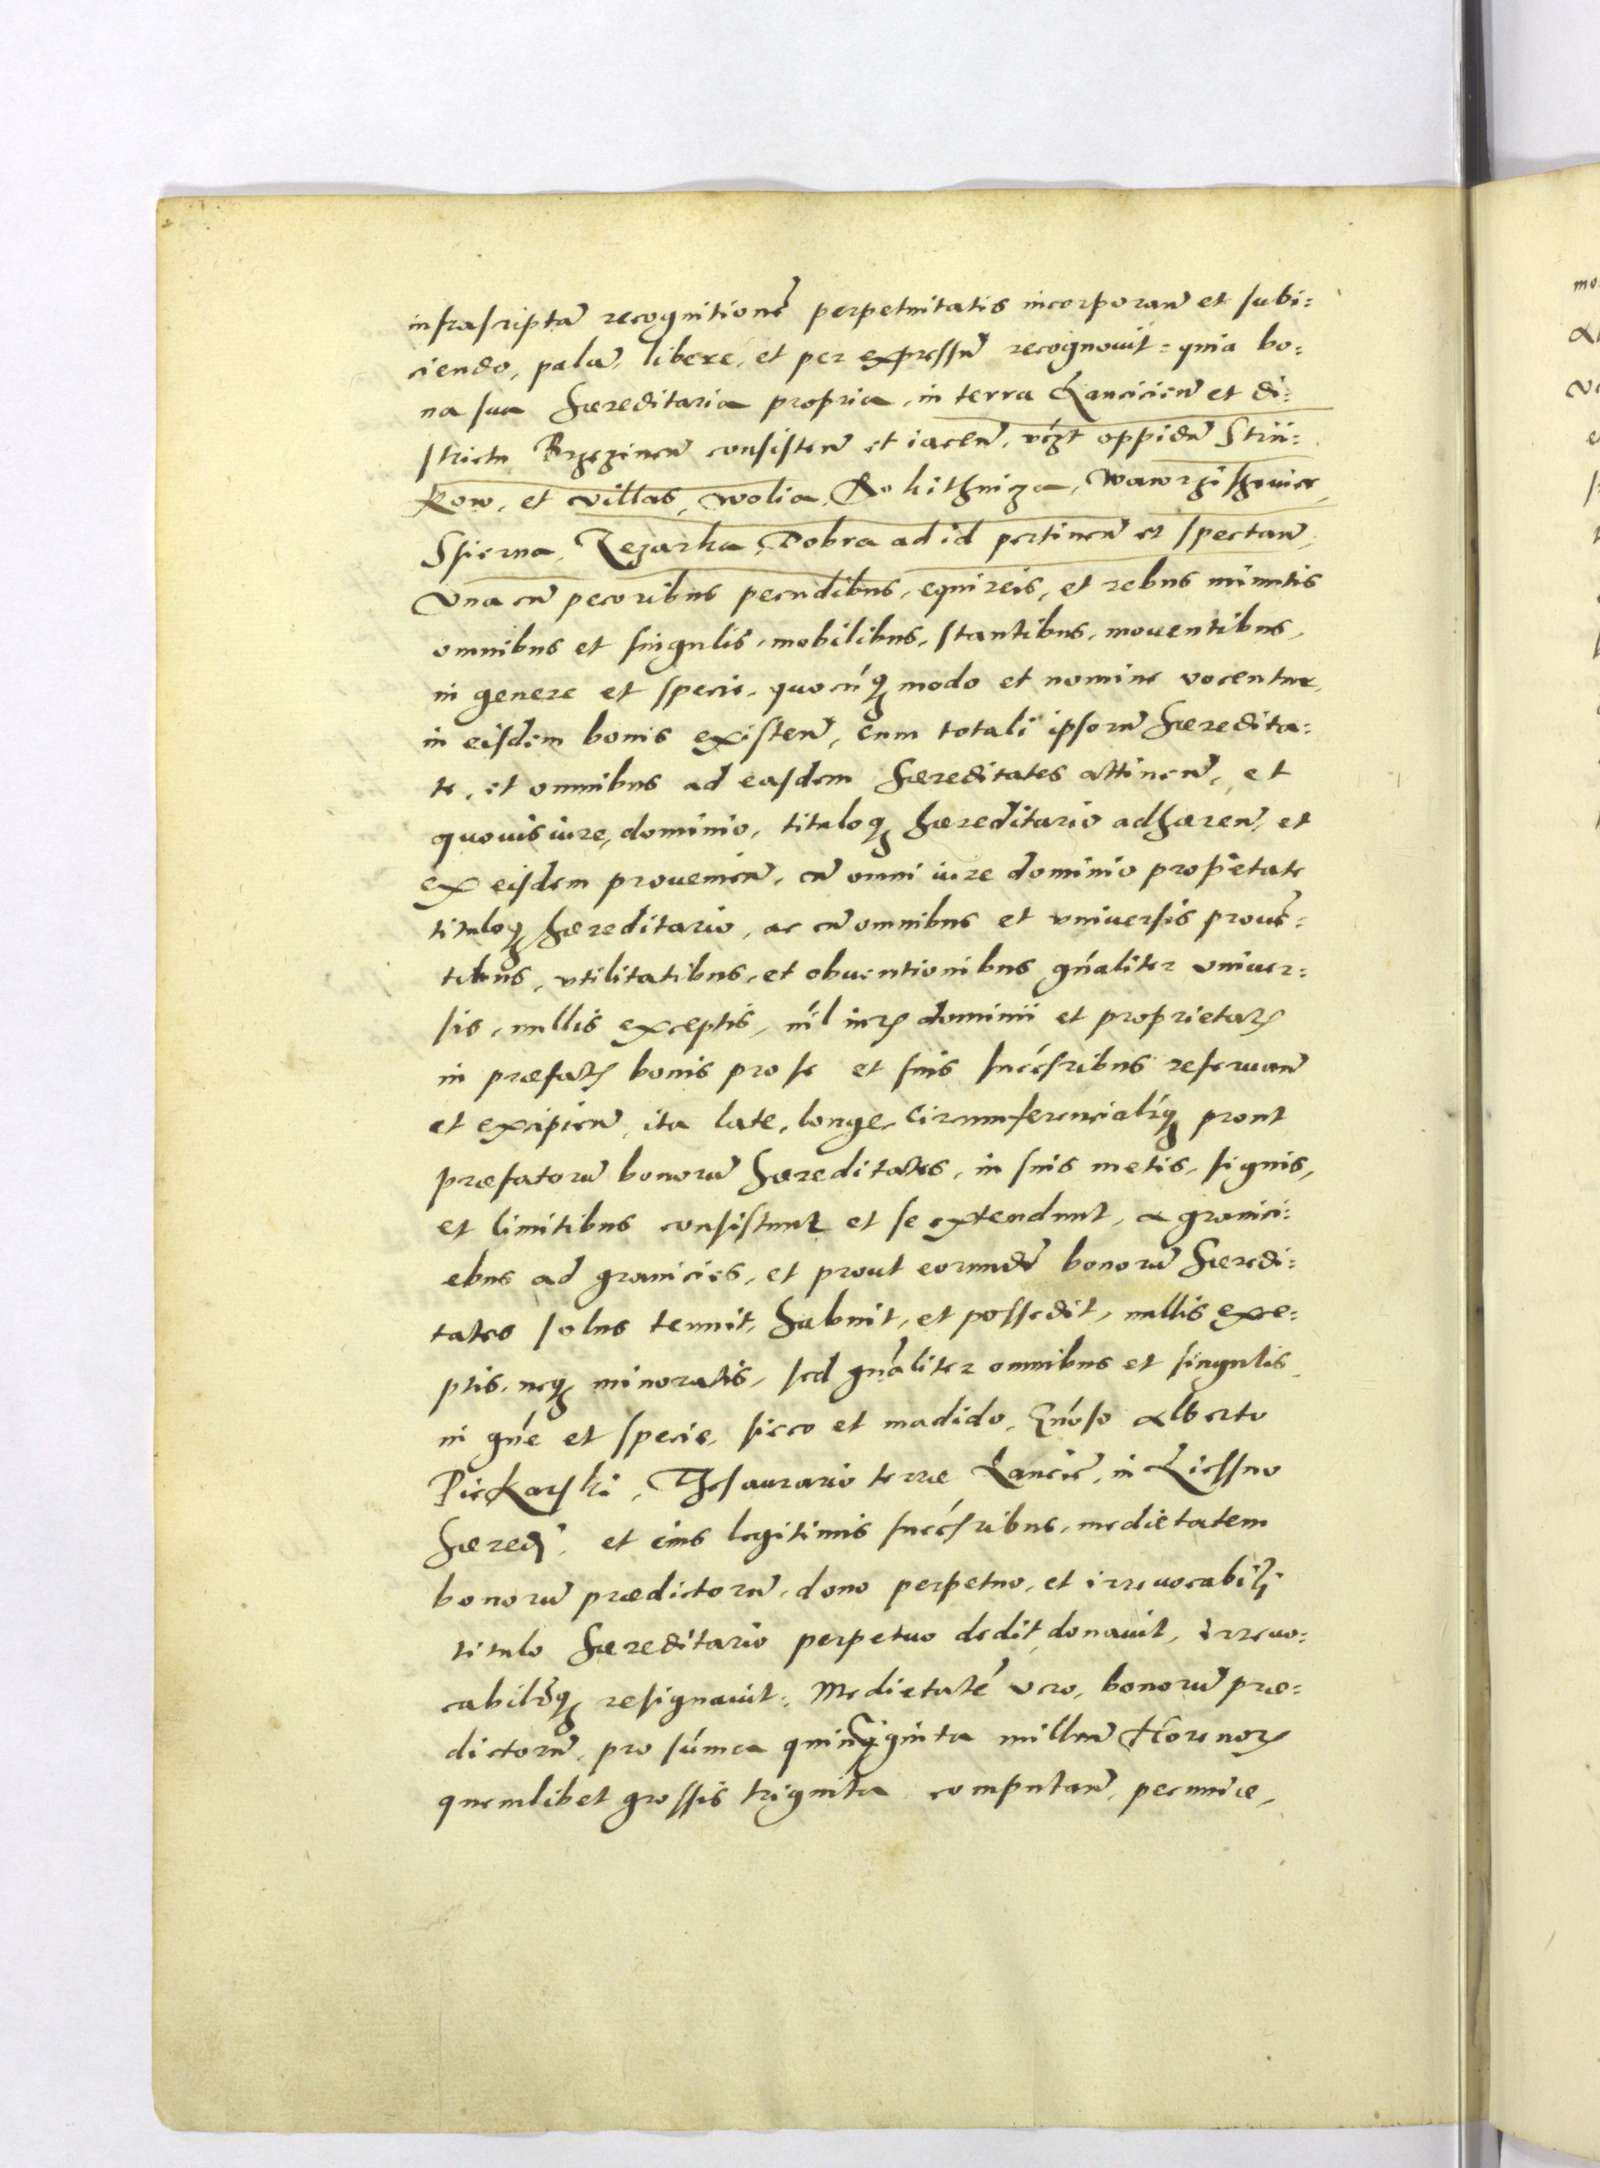 infrascriptā recognitionē perpetuitatis incorporan̄ et subi=
ciendo, palā, libere, et per expressū recognouit: quia bo=
na sua hæreditaria propria, in terra Lancicien̄ et di=
strictu Brzezinen̄ consisten̄ et iacen̄, vĉzt oppidū Strii=
kow, et villas, Wolia, Wawrzisszouicze,
Ssierna, Dobra ad id pertinen̄ et spectan̄,
Vna cū pecoribus pecudibus, equireis, et rebus minutis
omnibus et singulis, mobilibus, stantibus, mouentibus,
in genere et specie, quocūq modo et nomine vocentur,
in eisdem bonis existen̄, cum totali ipsorū hæredita=
te, et omnibus ad easdem hæreditates attinen̄, et
quouis iure, dominio, tituloq hæreditario adhæren̄, et
ex eisdem prouenien̄, cū omni iure dominio propietate
tituloq hæreditario, ac cū omnibus et vniuersis prouē=
tibus, vtilitatibus, et obuentionibus gn̄aliter vniuer=
sis, nullis exceptis, nīl iurꝭ dominii et proprietatꝭ
in præfatꝭ bonis pro se et suis succ̄sribus reseruan̄
et excipien̄, ita late, longe, circumferencialiq prout
præfatorū bonorū hæreditates, in suis metis, signis,
et limitibus consistunt et se extendunt, a granici=
ebus ad granicies, et prout eorundē bonorū hæredi=
tates solus tenuit, habuit, et possedit, nullis exce=
ptis, neq minoratis, sed gn̄aliter omnibus et singulis
in gn̄e et specie, sicco et madido, Gn̄oso Alberto
Piekarski, Thesaurario terræ Lancic̄, in Liessno
hæredi, et eius legitimis succ̄sribus, medietatem
bonorū prædictorū, dono perpetuo, et irreuocabili
titulo hæreditario perpetuo dedit, donauit, irreuo=
cabilrq resignauit: Medietatē vero, bonorū præ=
dictorū, pro sūma quinquiginta millium florenorꝭ
quemlibet grossis triginta computan̄, pecuniæ,